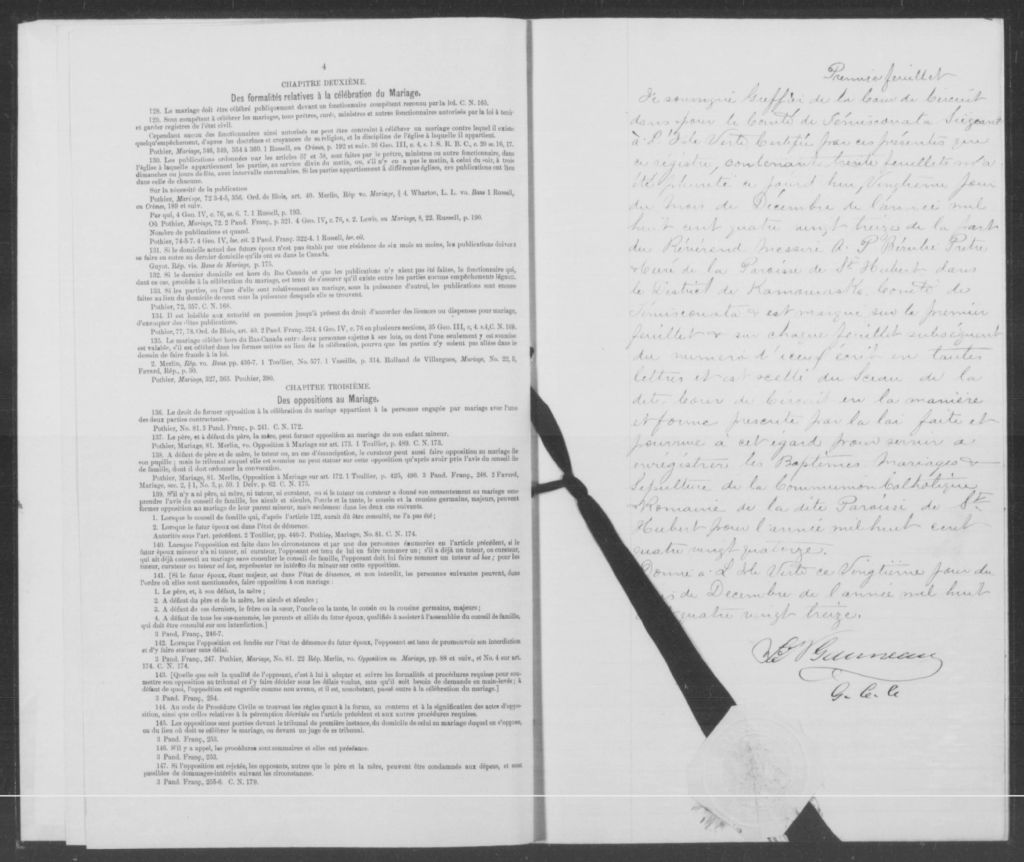 4
CHAPITRE DEUXIÈME.
Des formalités relatives à la célébration du Mariage.
128. Le mariage doit être célébré publiquement devant un fonctionnaire compétent reconnu par la loi. C. N. 165.
129. Sont compétent à célébrer les mariages, tous prêtres, curés, ministres et autres fonctionnaires autorisés par la loi à tenir
et garder registres de l'état civil.
Cependant aucun des fonctionnaires ainsi autorisés ne peut être contraint à célébrer un mariage contre lequel il existe
quelqu'empêchement, d'après les doctrines et croyances de sa religion, et la discipline de l'église à laquelle il appartient.
Pothier, Mariage, 346, 349, 354 à 360. 1 Russell, on Crimes, p. 192 et suiv. 36 Geo. III, c. 4, s. 1. S. R. B. C., c. 20 ss. 16, 17.
130. Les publications ordonnées par les articles 57 et 58, sont faites par le prêtre, ministre ou autre fonctionnaire, dans
l'église à laquelle appartiennent les parties, au service divin du matin, ou, s'il n'y en a pas le matin, à celui du soir, à trois
dimanches ou jours de fête, avec intervalle convenables. Si les parties appartiennent à différentes églises, ces publications ont lieu
dans celle de chacune.
Sur la nécessité de la publication
Pothier, Mariage, 72 3-4-5, 356. Ord. de Blois, art. 40. Merlin, Rép vo. Mariage, § 4, Wharton, L. L. vo. Bans 1 Russell,
on Crimes, 189 et suiv.
Par qui, 4 Geo. IV, c. 76, ss. 6. 7. 1 Russell, p. 193.
Où Pothier, Mariage, 72. 2 Pand. Franç., p. 321. 4 Geo. IV, c. 76, s. 2. Lewis, on Mariage, 8, 22. Russell, p. 190.
Nombre de publications et quand.
Pothier, 74-5-7. 4 Geo. IV, loc. cit. 2 Pand. Franç. 322-4. 1 Russell, loc. cit.
131. Si le domicile actuel des futurs époux n'est pas établi par une résidence de six mois au moins, les publications doivent
se faire en outre au dernier domicile qu'ils ont eu dans le Canada.
Guyot. Rép. vis. Bans de Mariage, p. 175.
132. Si le dernier domicile est hors du Bas Canada et que les publications n'y aient pas été faites, le fonctionnaire qui,
dans ce cas, procède à la célébration du mariage, est tenu de s'assurer qu'il existe entre les parties aucuns empêchements légaux.
133. Si les parties, ou l'une d'elle sont relativement au mariage, sous la puissance d'autrui, les publications sont encore
faites au lieu du domicile de ceux sous la puissance desquels elle se trouvent.
Pothier, 72, 357. C. N. 168.
134. Il est loisible aux autorité en possession jusqu'à présent du droit d'accorder des licences ou dispenses pour mariage,
d'exempter des dites publications.
Pothier, 77, 78. Ord. de Blois, art. 40. 2 Pand. Franç. 324. 4 Geo. IV, c. 76 en plusieurs sections, 35 Geo. III, c, 4. s.4, C. N. 169.
135. Le mariage célébré hors du Bas-Canada entre deux personnes sujettes à ses lois, ou dont l'une seulement y est soumise
est valable, s'il est célébré dans les formes usitées au lieu de la célébration, pourvu que les parties n'y soient pas allées dans le
dessein de faire fraude à la loi.
2. Merlin, Rép. vo. Bans pp. 436-7. 1 Toullier, No. 577. 1 Vazeille, p. 314. Rolland de Villargues, Mariage, No. 22, 3,
Favard, Rép., p. 50.
Pothier, Mariage, 327, 363. Pouhier, 390.
CHAPITRE TROISIÈME.
Des oppositions au Mariage.
136. Le droit de former opposition à la célébration du mariage appartient à la personne engagée par mariage avec l'une
des deux parties contractantes.
Pothier, No. 81. 2 Pand. Franç., p. 241. C. N. 172.
137. Le père, et à défaut du père, la mère, peut former opposition au mariage de son enfant mineur.
Pothier, Mariage, 81. Merlin, vo. Opposition à Mariage sur art. 173. 1 Toullier, p. 489. C. N. 173.
138. A défaut de père et de mère, le tuteur ou, au cas d'émancipation, le curateur peut aussi former opposition au mariage de
son pupille ; mais le tribunal auquel elle est soumise ne peut statuer sur cette opposition qu'après avoir pris l'avis du conseil
de famille, dont il doit ordonner la convocation.
Pothier, Mariage, 81. Merlin, Opposition à Mariage sur art. 172. 1 Toullier, p. 425, 490. 3 Pand. Franç., 248. 2 Favard,
Mariage, sec. 2, § 1, No. 3, p. 59. 1 Delv. p. 62. C. N. 175.
139. S'il n'y a ni père, ni mère, ni tuteur, ni curateur, ou si le tuteur ou curateur a donné son consentement au mariage sans
prendre l'avis du conseil de famille, les aïeuls et aïeules, l'oncle et la tante, le cousin et la cousine germains, majeurs, peuvent
former opposition au mariage de leur parent mineur, mais seulement dans les deux cas suivants.
1. Lorsque le conseil de famille qui, d'après l'article 122, aurait dû être consulté, ne l'a pas été ;
2. Lorsque le futur époux est dans l'état de démence.
Autorités sous l'art. précédent. 2 Toullier, pp. 440-7. Pothier, Mariage, No. 81. C. N. 174.
140. Lorsque l'opposition est faite dans les circonstances et par une des personnes énumérées en l'article précédent, si le
futur époux mineur n'a ni tuteur, ni curateur, l'opposant est tenu de lui en faire nommer un ; s'il a déjà un tuteur, ou curateur,
qui ait déjà consenti au mariage sans consulter le conseil de famille, l'opposant doit lui faire nommer un tuteur ad hoc ; pour les
tuteur, curateur ou tuteur ad hoc, représenter les intérêts du mineur sur cette opposition.
141. [Si le futur époux, étant majeur, est dans l'état de démence, et non interdit, les personnes suivantes peuvent, dans
l'ordre où elles sont mentionnées, faire opposition à son mariage :
1. Le père, et, à son défaut, la mère ;
2. A défaut du père et de la mère, les aïeuls et aïeules ;
3. A défaut de ces derniers, le frère ou la sœur, l'oncle ou la tante, le cousin ou la cousine germains, majeurs ;
4. A défaut de tous les sus-nommés, les parents et alliés du futur époux, qualifiés à assister à l'assemblée du conseil de famille,
qui doit être consulté sur son interdiction.]
3 Pand. Franç., 246-7.
142. Lorsque l'opposition est fondée sur l'état de démence du futur époux, l'opposant est tenu de promouvoir son interdiction
et d'y faire statuer sans délai.
3 Pand. Franç., 247. Pothier, Mariage, No. 81. 22 Rép. Merlin, vo. Opposition au Mariage, pp. 88 et suiv., et No. 4 sur art.
174. C. N. 174.
143. [Quelle que soit la qualité de l'opposant, c'est à lui à adopter et suivre les formalités et procédures requises pour sou-
mettre son opposition au tribunal et l'y faire décider sous les délais voulus, sans qu'il soit besoin de demande en main-levée ; à
défaut de quoi, l'opposition est regardée comme non avenu, et il est, nonobstant, passé outre à la célébration du mariage.]
3 Pand. Franç., 254.
144. Au code de Procédure Civile se trouvent les règles quant à la forme, au contenu et à la signification des actes d'oppo-
sition, ainsi que celles relatives à la péremption décrétée en l'article précédent et aux autres procédures requises.
145. Les oppositions sont portées devant le tribunal de première instance, du domicile de celui au mariage duquel on s'oppose,
ou du lieu où doit se célébrer le mariage, ou devant un juge de ce tribunal.
3 Pand. Franç., 253.
146. S'il y a appel, les procédures sont sommaires et elles ont préséance.
3 Pand. Franç., 253.
147. Si l'opposition est rejetée, les opposants, autres que le père et la mère, peuvent être condamnés aux dépens, et sont
passibles de dommages-intérêts suivant les circonstances.
3 Pand. Franç., 255-6. C. N. 179.
Premier feuillet
Je soussigné Greffier de la Cour de Circuit
dans & pour le Comté de Témiscouata Siégeant
à L'Isle Verte Certifie par ces présentes que
ce registre, contenant trente feuillets
ce jourd'hui, Vingtième jour
du mois de Décembre de l'année mil
huit cent quatre vingt treize de la part
du Révérend Messire A. P. Bérubé Prêtre
& Curé de la Paroisse de St Hubert dans
le District de Kamouraska Comté de
Témiscouata & est marqué sur le premier
feuillet & sur chaque feuillet subséquent
du numéro d'iceux écrit en toutes
lettres et est scellé du Sceau de la
dite Cour de Circuit en la manière
et forme prescrite par la loi faite et
pourvue à cet égard pour servir à
enregistrer les Baptêmes Mariages &
Sépulture de la Communion Catholique
& Romaine de la dite Paroisse de St
Hubert pour l'année mil huit cent
quatre vingt quatorze.
Donné à L'Isle Verte ce Vingtième jour du
de Décembre de l'année mil huit
quatre vingt treize.
G. C. C